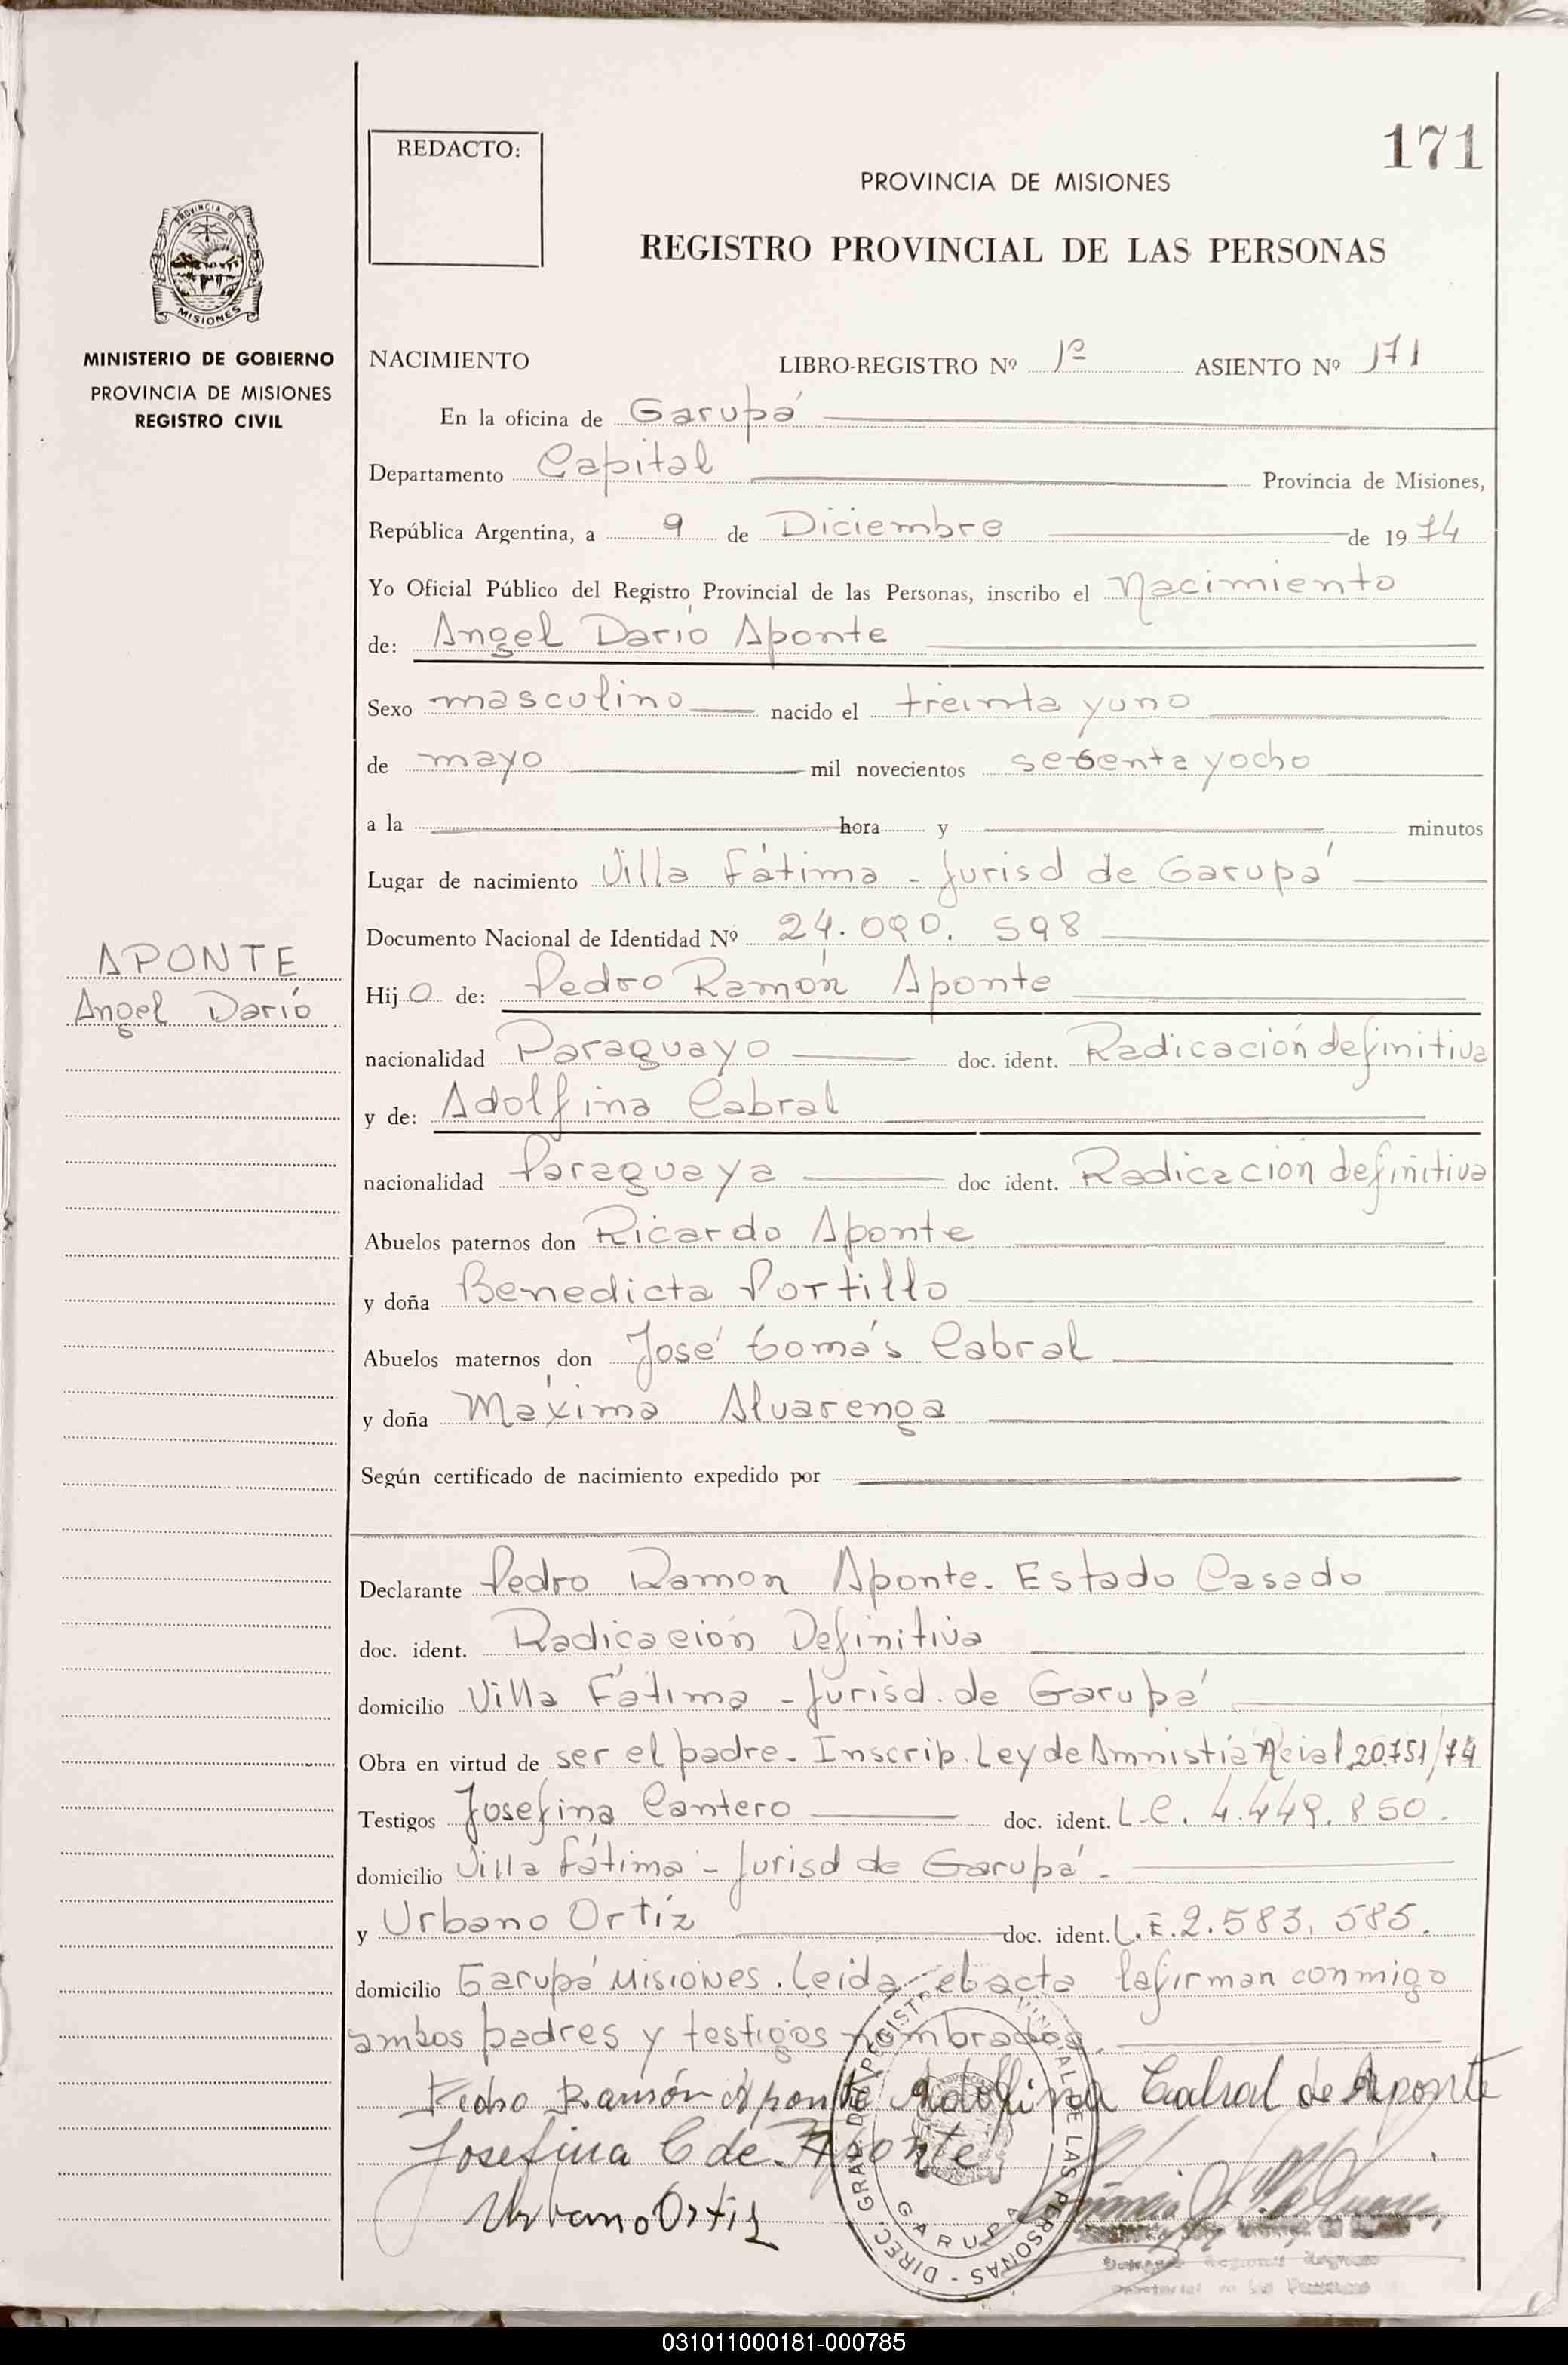 171
REDACTO:
PROVINCIA DE MISIONES
REGISTRO PROVINCIAL DE LAS PERSONAS
PROVINCIA DE
MISIONES
MINISTERIO DE GOBIERNO
PROVINCIA DE MISIONES
REGISTRO CIVIL
NACIMIENTO LIBRO-REGISTRO Nº 1º ASIENTO Nº 171
En la oficina de Garupá
Departamento Capital Provincia de Misiones,
República Argentina, a 9 de Diciembre de 1974
Yo Oficial Público del Registro Provincial de las Personas, inscribo el Nacimiento
de: Angel Dario Aponte
Sexo masculino nacido el treinta y uno
de mayo mil novecientos sesenta y ocho
a la hora y minutos
Lugar de nacimiento Villa Fátima - Jurisd de Garupá
Documento Nacional de Identidad Nº 24.090.598
APONTE
Angel Darío
Hijo de: Pedro Ramón Aponte
nacionalidad Paraguayo doc. ident. Radicación definitiva
y de: Adolfina Cabral
nacionalidad Paraguaya doc ident. Radicación definitiva
Abuelos paternos don Ricardo Aponte
y doña Benedicta Portillo
Abuelos maternos don José Tomás Cabral
y doña Máxima Alvarenga
Según certificado de nacimiento expedido por
Declarante Pedro Ramon Aponte. Estado Casado
doc. ident. Radicación Definitiva
domicilio Villa Fátima - Jurisd. de Garupá
Obra en virtud de ser el padre. Inscrip. Ley de Amnistía Nacial 20.751/74
Testigos Josefina Cantero doc. ident. L.C. 4.449.850.
domicilio Villa Fátima - Jurisd de Garupá.
y Urbano Ortiz doc. ident. L.E. 2.583.585.
domicilio Garupá Misiones. Leida el acta la firman conmigo
ambos padres y testigos nombrados.
Pedro Ramón Aponte Adolfina Cabral de Aponte
Josefina C de Aponte
Urbano Ortiz
DIREC. GRAL. DEL REGISTRO PROVINCIAL DE LAS PERSONAS -
GARUPA
031011000181-000785